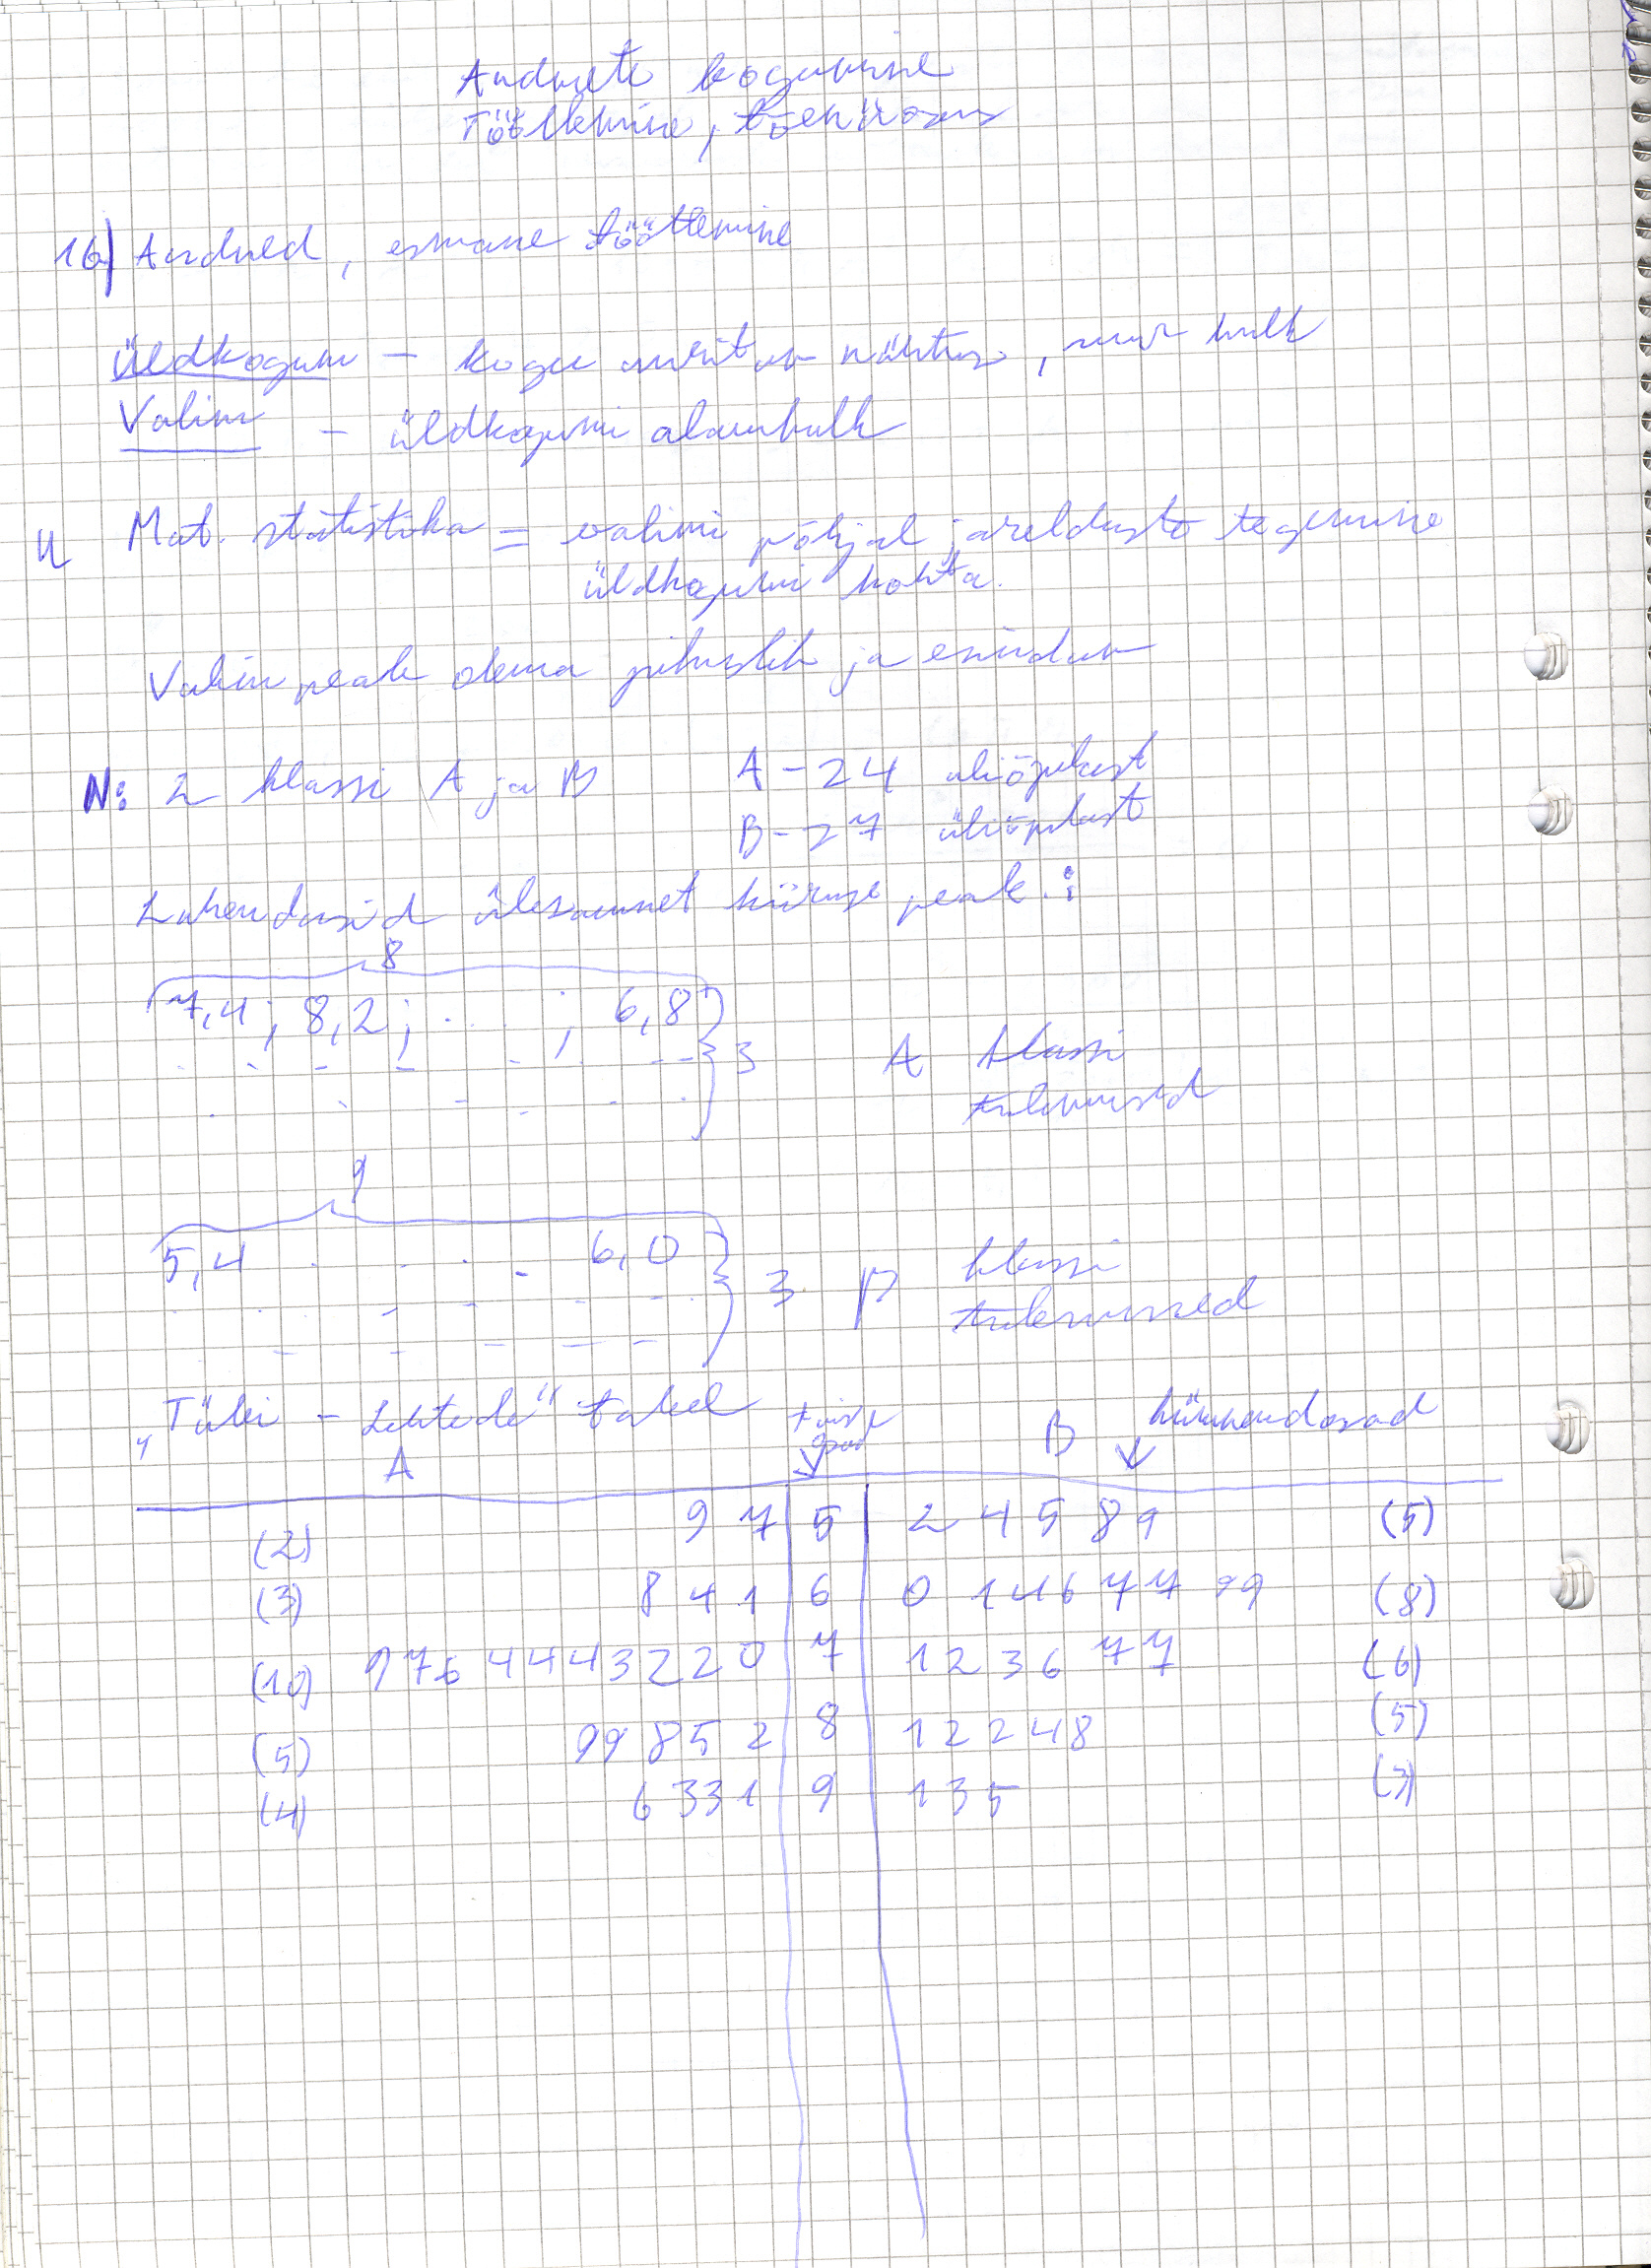 Andmete kogumine
Töötlemine, tõenäosus
16) Andmed, esmane töötlemine
Üldkogum – kogu uuritav nähtus, suur hulk
Valim – üldkogumi alamhulk
Mat. statistika = valimi põhjal järelduste tegemine
üldkogumi kohta.
Valim peab olema juhuslik ja esindav
N: 2 klassi A ja B A – 24 üliõpilast
B – 27 üliõpilast
Lahendasid ülesannet kiiruse peale:
8
7,4; 8,2; . . . ; 6,8 } 3 A klassi
tulemused
9
5,4 . . . . 6,0 } 3 B klassi
tulemused
„Tüvi – Lehtede“ tabel B kümnendosad
A
(2) 9 7 | 5 | 2 4 5 8 9 (5)
(3) 8 4 1 | 6 | 0 1 4 6 7 7 9 9 (8)
(10) 9 7 6 4 4 4 3 2 2 0 | 7 | 1 2 3 6 7 7 (6)
(5) 9 9 8 5 2 | 8 | 1 2 2 4 8 (5)
(4) 6 3 3 1 | 9 | 1 3 5 (3)